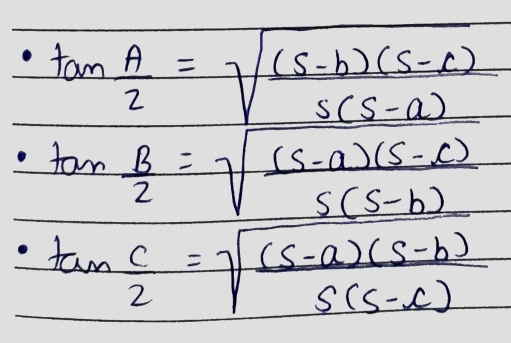 • tan A/2 = √((s-b)(s-c)/s(s-a))
• tan B/2 = √((s-a)(s-c)/s(s-b))
• tan C/2 = √((s-a)(s-b)/s(s-c))